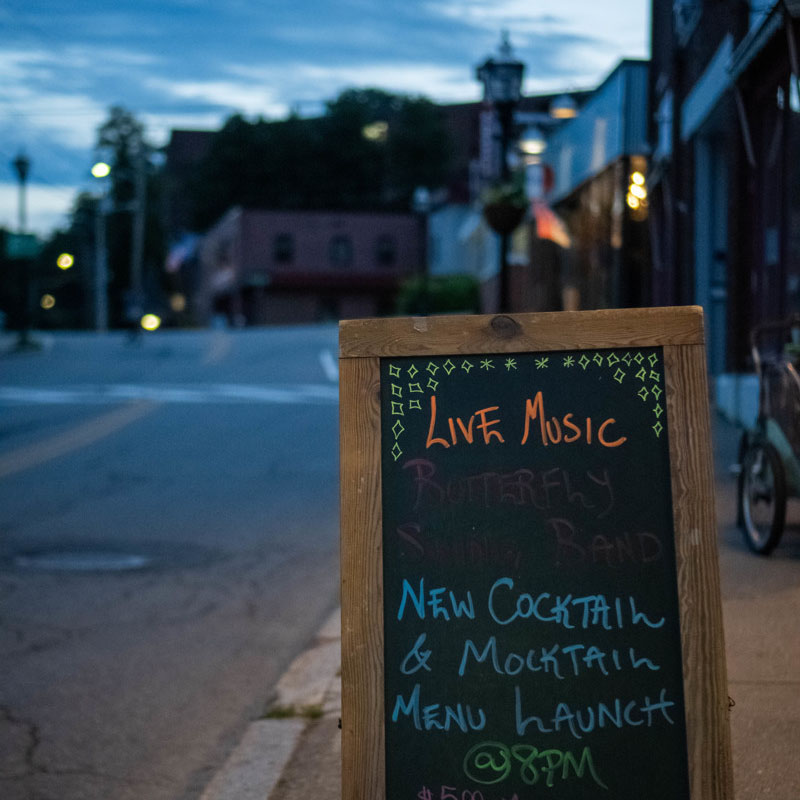 LIVE MUSIC
BUTTERFLY
BAND
NEW COCKTAIL
& MOCKTAIL
MENU LAUNCH
@ 8PM